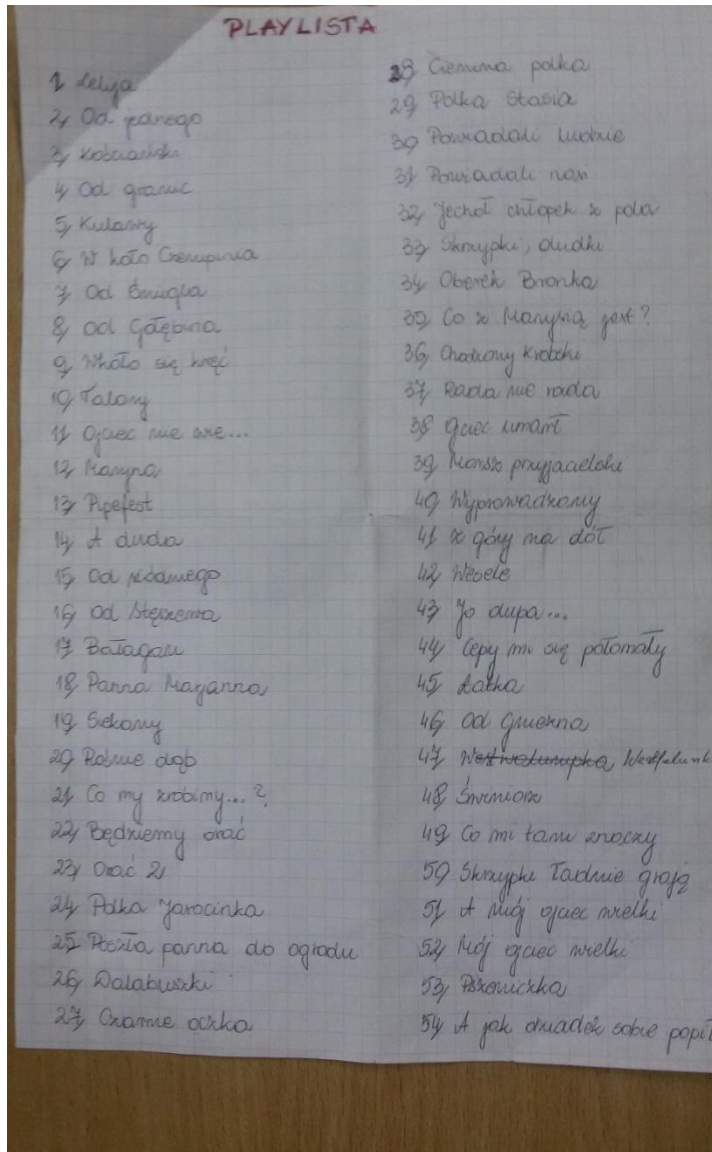 PLAYLISTA
1, Lelija
2, Od jednego
3, Kościański
4, Od granic
5, Kulawy
6, W koło Czempinia
7, Od Śmigla
8, Od Gołębina
9, Wkoło się kręć
10, Talary
11, Ojciec nie wie...
12, Maryna
13, Pipefest
14, A duda
15, Od modnego
16, Od Stęszewa
17, Bałagan
18, Panna Maryanna
19, Siekany
20, Rośnie dąb
21, Co my zrobimy...?
22, Będziemy orać
23, Orać 2
24, Polka Jarocinka
25, Poszła panna do ogrodu
26, Dalabuszki
27, Czarne oczka
28, Ciemna polka
29, Polka Stasia
30, Powiadali ludzie
31, Powiadali nasi
32, Jechoł chłopek z pola
33, Skrzypki, dudki
34, Oberek Bronka
35, Co z Marysią jest?
36, Chodzony Krobski
37, Rada nie rada
38, Ojciec umarł
39, Marsz przyjacielski
40, Wyprowadzany
41, Z góry na dół
42, Wesele
43, Jo dupa...
44, Cepy mi się połomały
45, Łatka
46, Od Gniezna
47, Westfalunk
48, Świniorz
49, Co mi tam znoczy
50, Skrzypki ładnie grają
51, A mój ojciec wielki
52, Mój ojciec wielki
53, Pszeniczka
54, A jak dziadek sobie popił